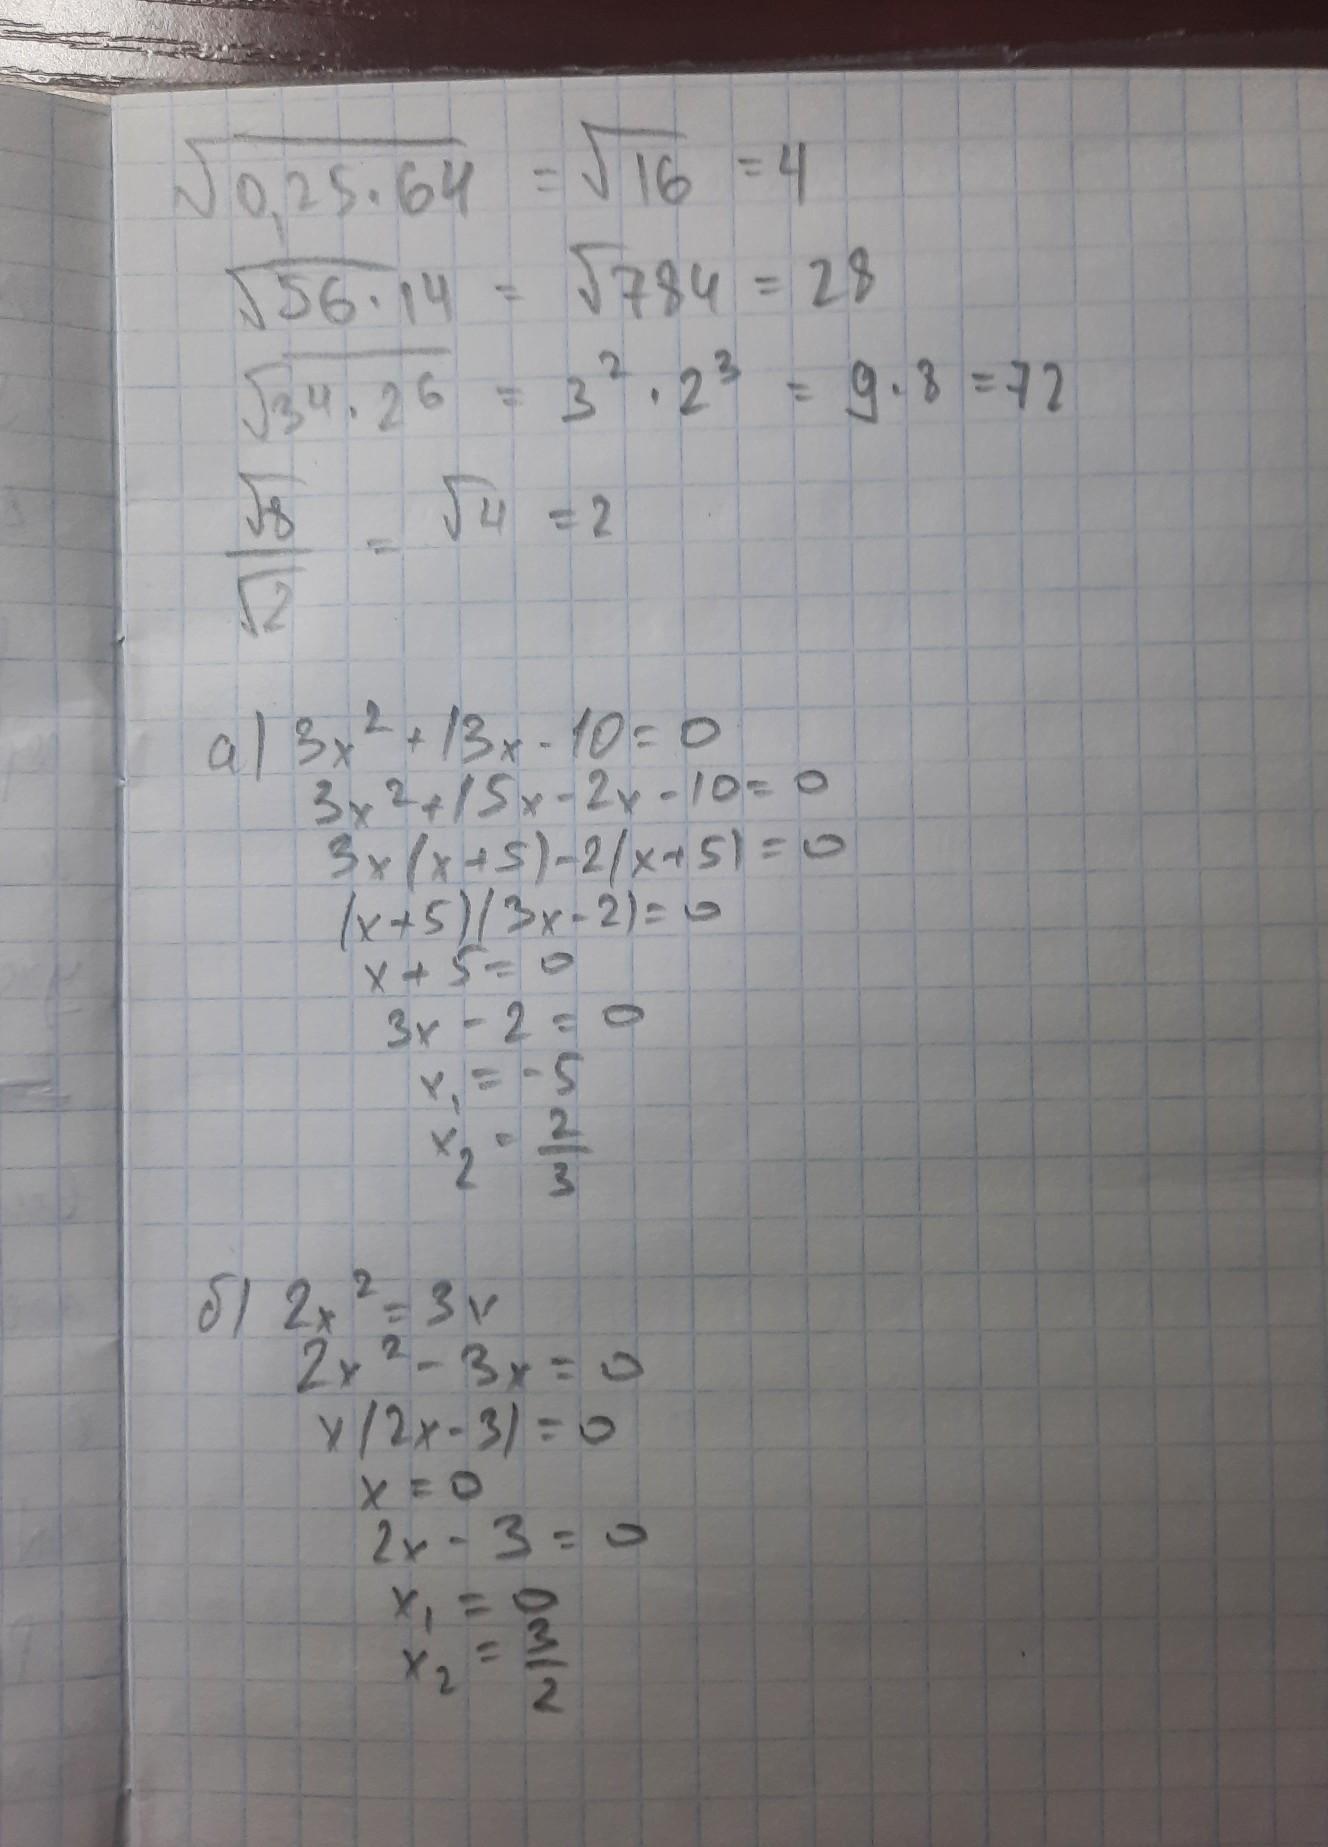 √0,25·64 = √16 = 4
√56·14 = √784 = 28
√3⁴·2⁶ = 3²·2³ = 9·8 = 72
√8/√2 = √4 = 2
а) 3x² + 13x - 10 = 0
3x² + 15x - 2x - 10 = 0
3x(x + 5) - 2(x + 5) = 0
(x + 5)(3x - 2) = 0
x + 5 = 0
3x - 2 = 0
x₁ = -5
x₂ = 2/3
б) 2x² = 3x
2x² - 3x = 0
x(2x - 3) = 0
x = 0
2x - 3 = 0
x₁ = 0
x₂ = 3/2